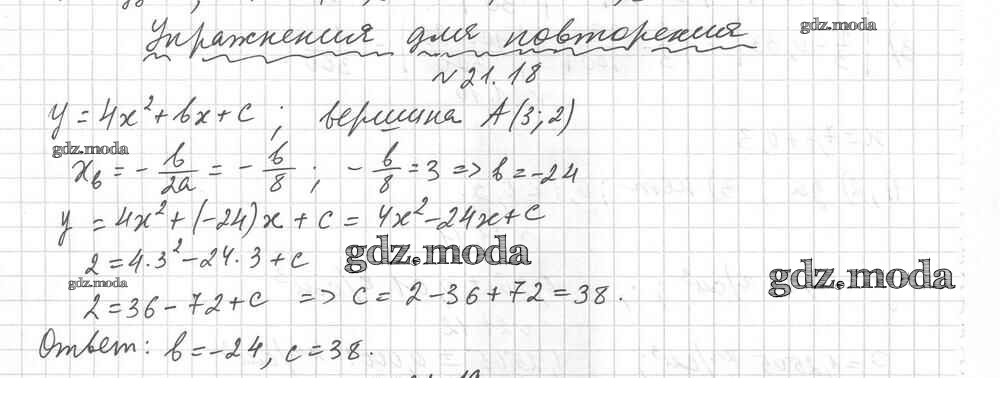 gdz.moda
Упражнения для повторения
№21.18
y = 4x² + bx + c ; вершина A(3; 2)
gdz.moda
xв = - b/2a = - b/8 ; - b/8 = 3 => b = -24
y = 4x² + (-24)x + c = 4x² - 24x + c
2 = 4·3² - 24·3 + c
gdz.moda
gdz.moda
gdz.moda
2 = 36 - 72 + c => c = 2 - 36 + 72 = 38.
Ответ: b = -24, c = 38.